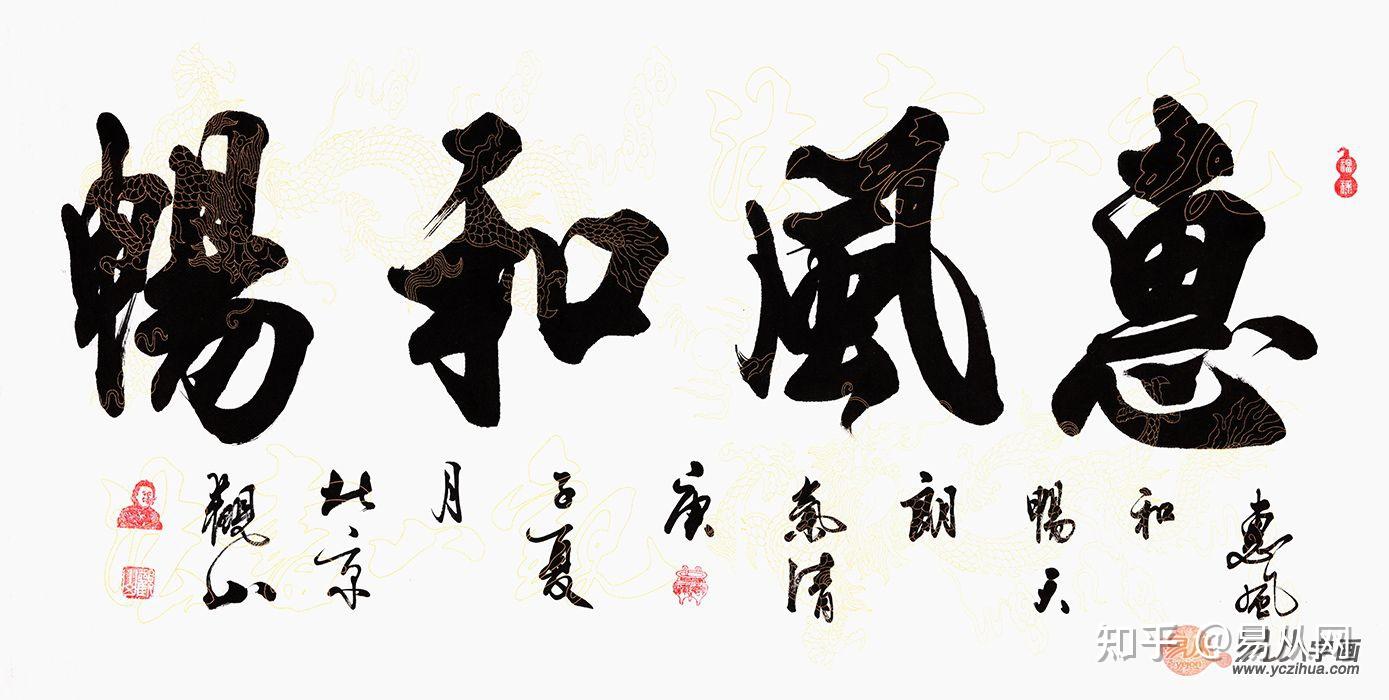 惠風和暢
惠風
和
暢天
朗
氣清
庚
子夏
月
北京
觀山
知乎 @易从网
易从字画
www.yczihua.com